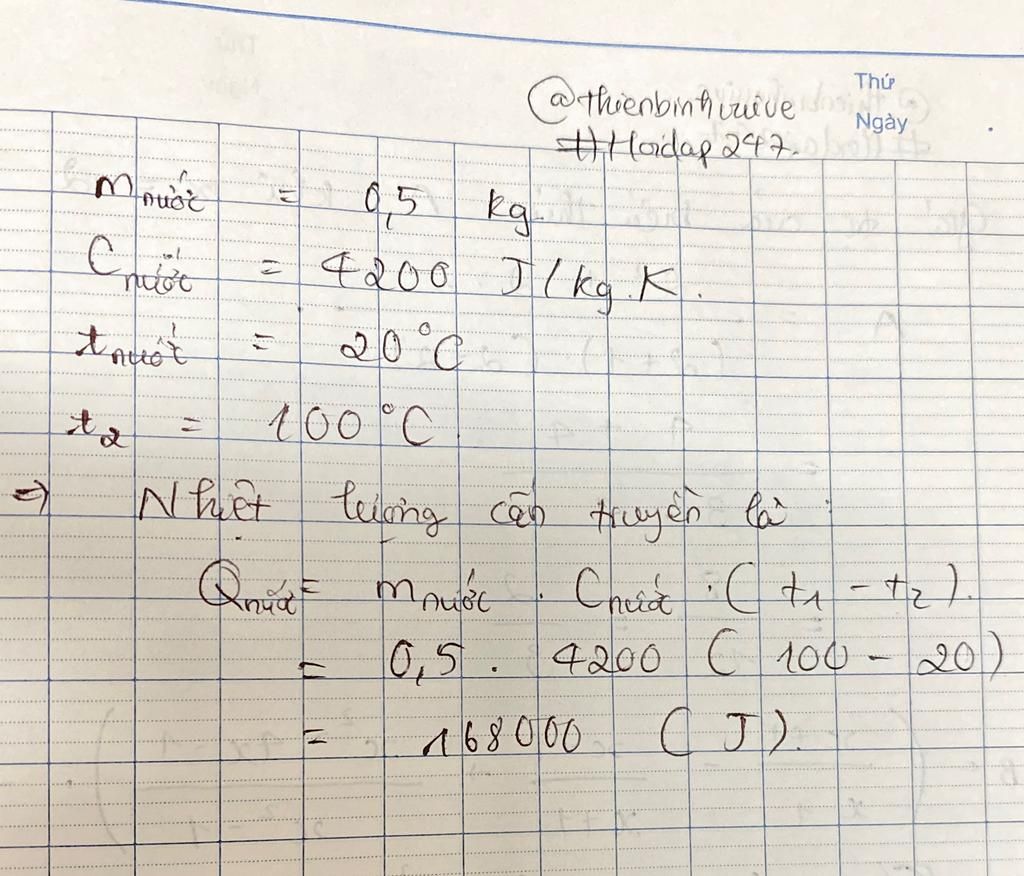 Thứ
@thienbinhvuive
Ngày
#Hoidap247.
m nước = 0,5 kg
C nước = 4200 J/kg.K.
t nước = 20°C
t2 = 100°C
=> Nhiệt lượng cần truyền là:
Q nước = m nước . C nước . (t1 - t2).
= 0,5 . 4200 (100 - 20)
= 168000 (J).